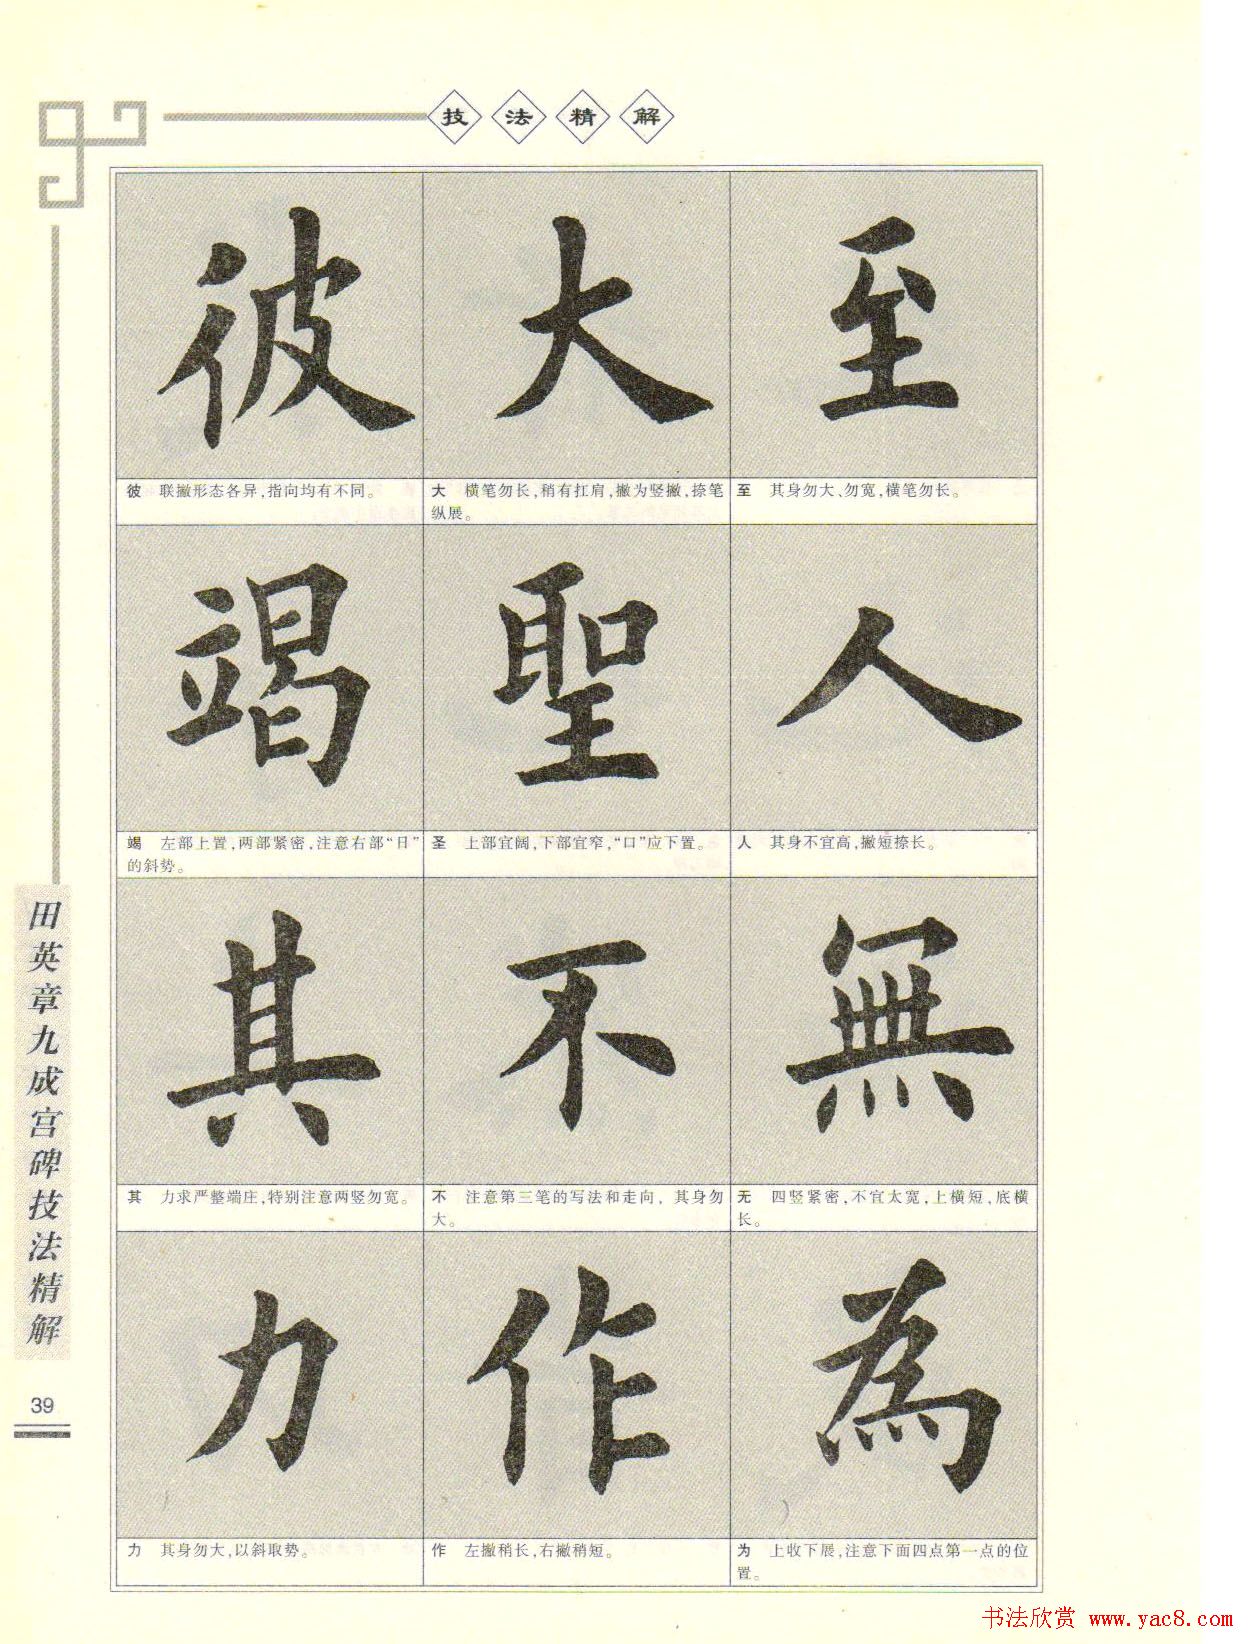 技法精解
彼 大 至
彼 联撇形态各异,指向均有不同。
大 横笔勿长,稍有扛肩,撇为竖撇,捺笔
纵展。
至 其身勿大、勿宽,横笔勿长。
竭 聖 人
竭 左部上置,两部紧密,注意右部“日”
的斜势。
圣 上部宜阔,下部宜窄,“口”应下置。
人 其身不宜高,撇短捺长。
其 不 無
其 力求严整端庄,特别注意两竖勿宽。
不 注意第三笔的写法和走向,其身勿
大。
无 四竖紧密,不宜太宽,上横短,底横
长。
力 作 為
力 其身勿大,以斜取势。
作 左撇稍长,右撇稍短。
为 上收下展,注意下面四点第一点的位
置。
田英章九成宫碑技法精解
39
书法欣赏 www.yac8.com